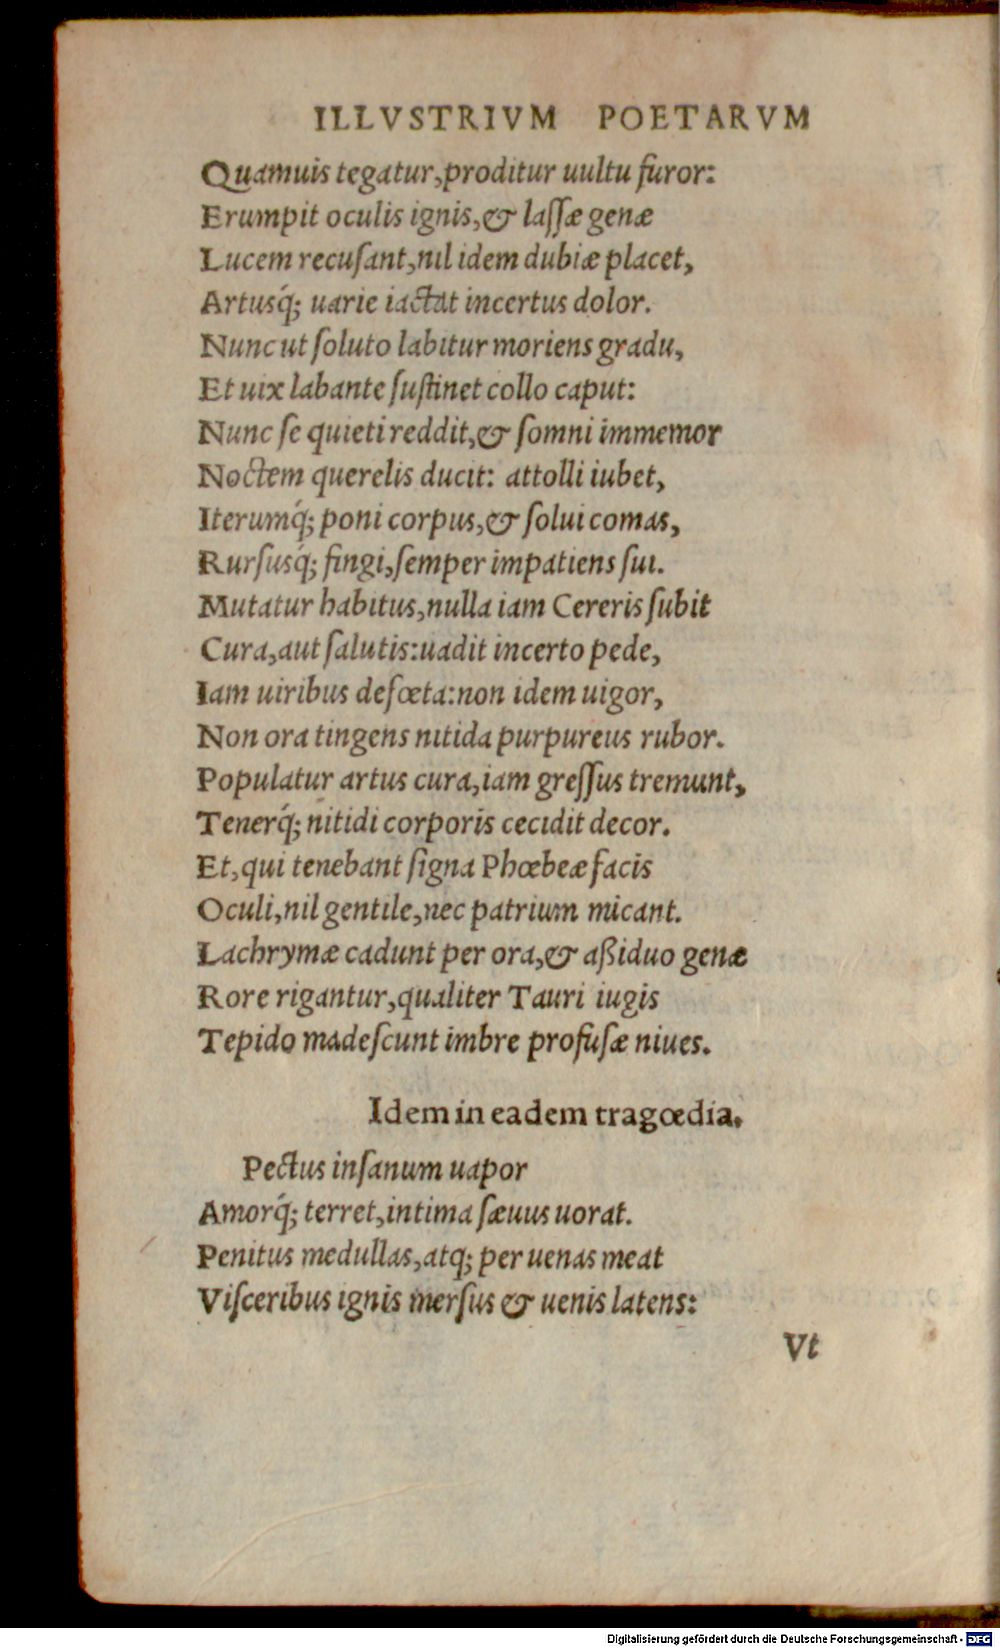 ILLVSTRIVM POETARVM
Quamuis tegatur, proditur uultu furor:
Erumpit oculis ignis, & laſſæ genæ
Lucem recuſant, nil idem dubiæ placet,
Artusq́; uarie iactat incertus dolor.
Nunc ut ſoluto labitur moriens gradu,
Et uix labante ſuſtinet collo caput:
Nunc ſe quieti reddit, & ſomni immemor
Noctem querelis ducit: attolli iubet,
Iterumq́; poni corpus, & ſolui comas,
Rurſusq́; fingi, ſemper impatiens ſui.
Mutatur habitus, nulla iam Cereris ſubit
Cura, aut ſalutis: uadit incerto pede,
Iam uiribus defœta: non idem uigor,
Non ora tingens nitida purpureus rubor.
Populatur artus cura, iam greſſus tremunt,
Tenerq́; nitidi corporis cecidit decor.
Et, qui tenebant ſigna Phœbeæ facis
Oculi, nil gentile, nec patrium micant.
Lachrymæ cadunt per ora, & aßiduo genæ
Rore rigantur, qualiter Tauri iugis
Tepido madeſcunt imbre profuſæ niues.
Idem in eadem tragœdia.
Pectus inſanum uapor
Amorq́; terret, intima ſæuus uorat.
Penitus medullas, atq; per uenas meat
Viſceribus ignis merſus & uenis latens:
Vt
Digitalisierung gefördert durch die Deutsche Forschungsgemeinschaft - DFG